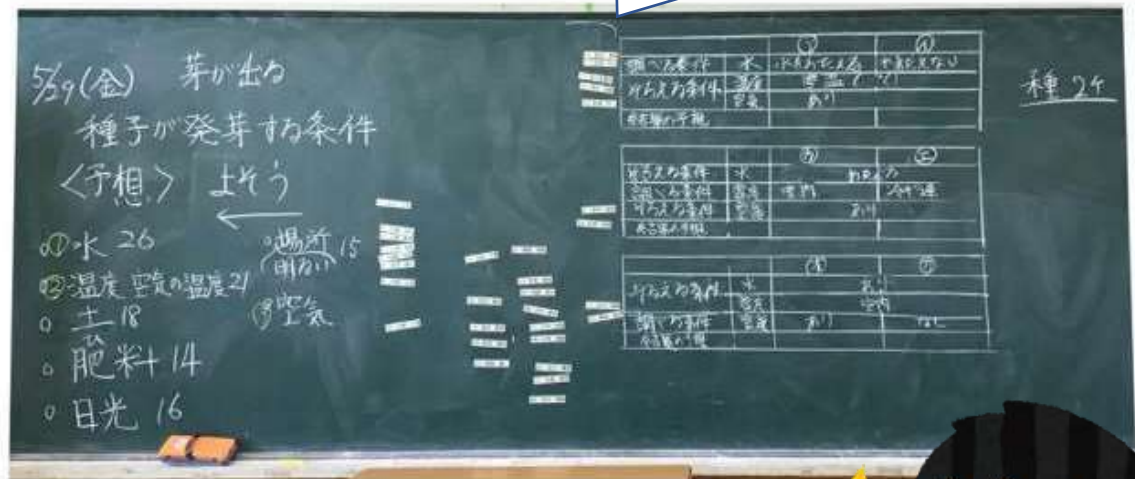 5/29(金) 芽が出る
種子が発芽する条件
<予想> よそう
←
①水 26
②温度 空気の温度21
土 18
肥料 14
日光 16
場所 15
(明るい)
③空気
㋐ ㋑
調べる条件 水 水をあたえる 水をあたえない
そろえる条件 温度
空気 あり
発芽の予想
㋒ ㋓
そろえる条件 水 あたえる
調べる条件 温度 室内 冷ぞう庫
そろえる条件 空気 あり
発芽の予想
㋔ ㋕
そろえる条件 水 あり
温度 室内
調べる条件 空気 あり なし
発芽の予想
種 24